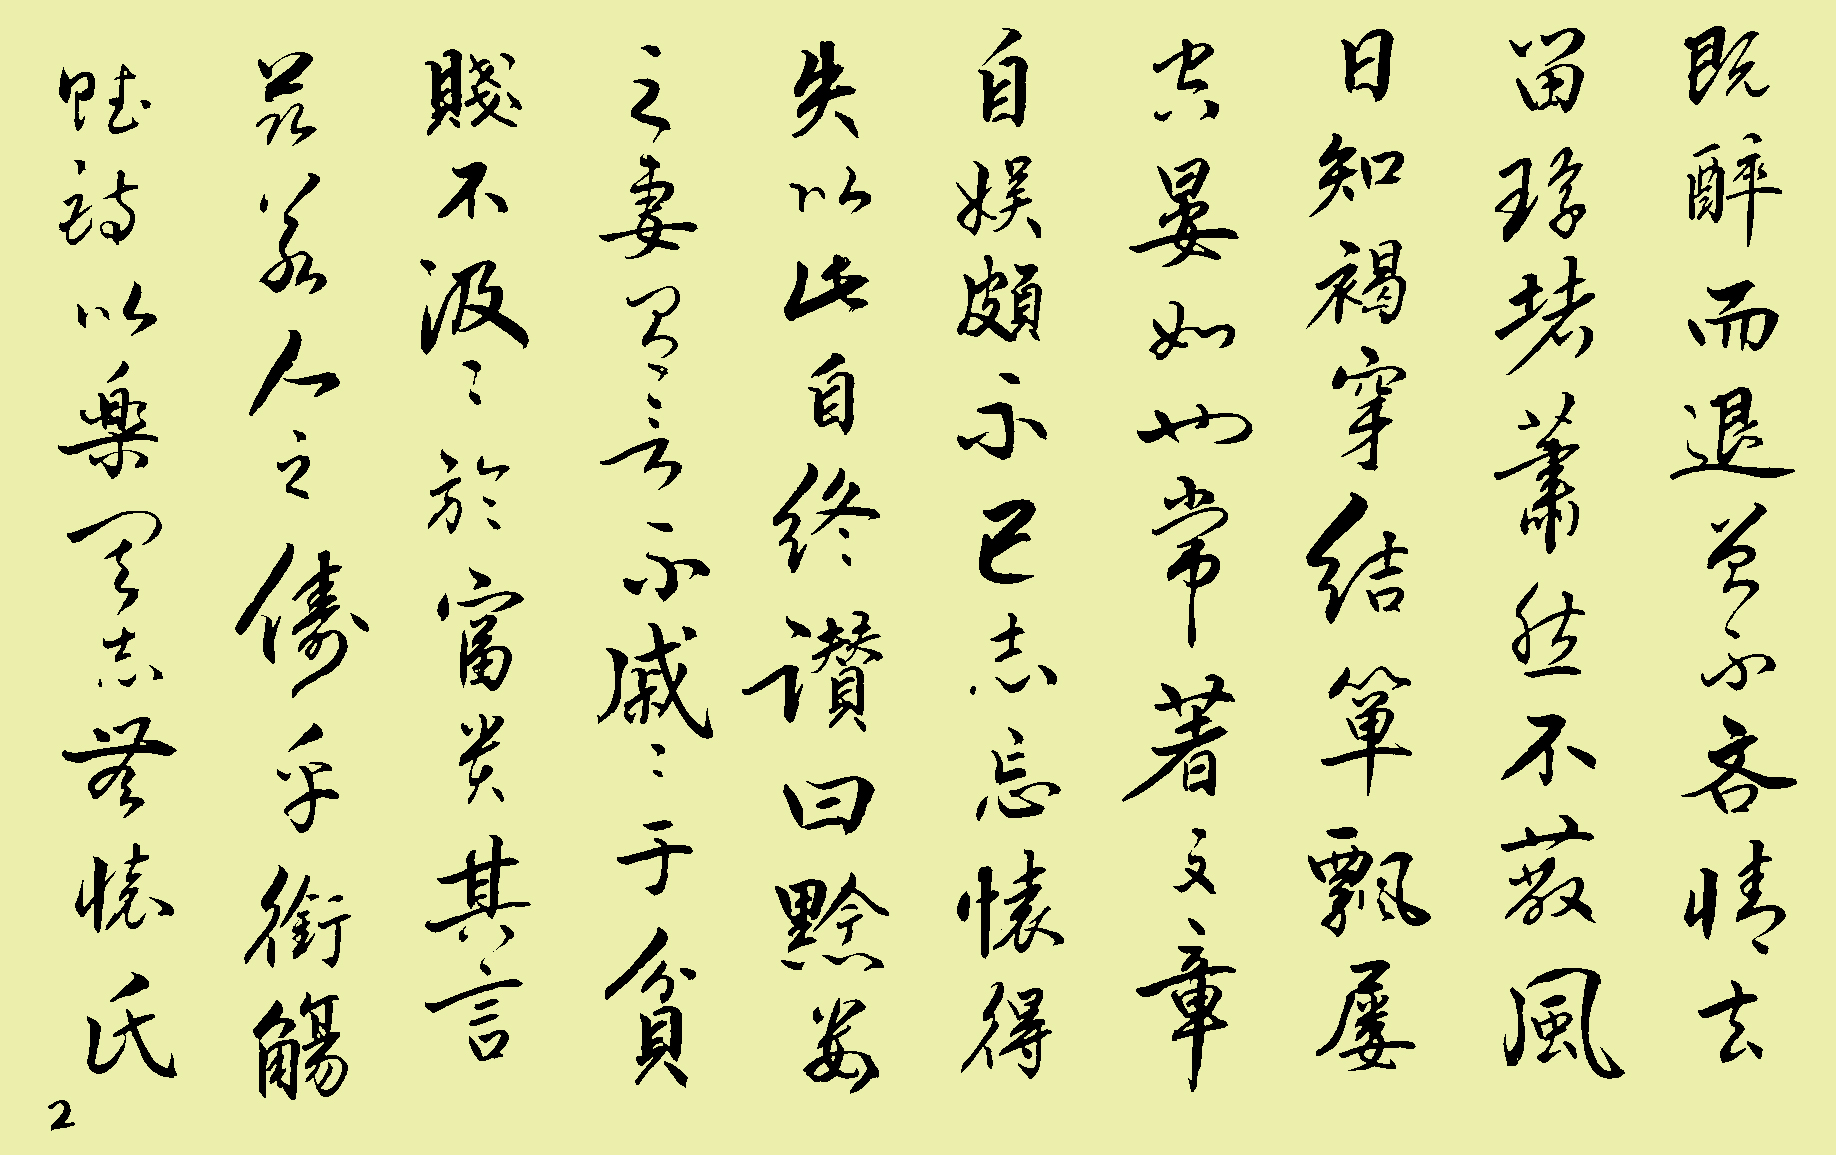 既醉而退曾不吝情去
留環堵蕭然不蔽風
日知褐穿結簞瓢屢
空晏如也常著文章
自娛頗示己志忘懷得
失以此自終讚曰黔婁
之妻有言不戚〻于貧
賤不汲〻於富貴其言
茲若人之儔乎銜觴
賦詩以樂其志無懷氏
2